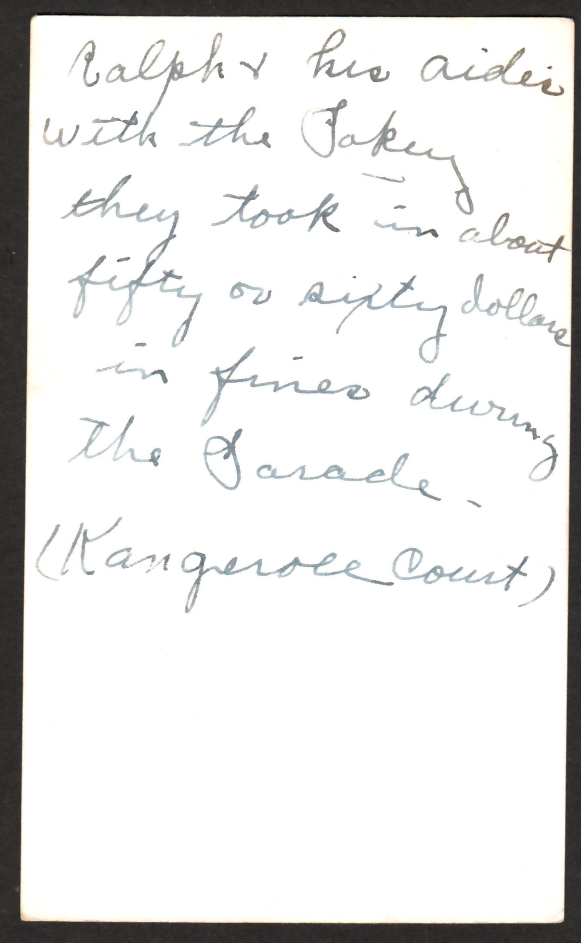 Ralph & his aides
with the Pokey
they took in about
fifty or sixty dollars
in fines during
the Parade -
(Kangeroee Court)